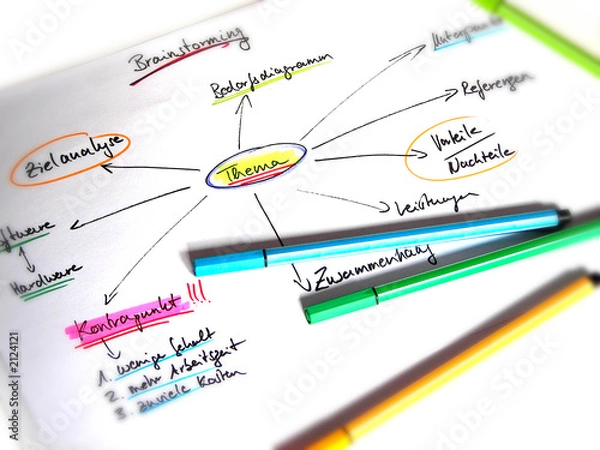 Brainstorming
Bedarfsdiagramm
Unterpunkte
Referenzen
Zielanalyse
Thema
Vorteile/
Nachteile
Leistungen
Software
Hardware
Zusammenhang
Kontrapunkt !!!
1. wenige Gehalt
2. mehr Arbeitszeit
3. zuviele Kosten
Adobe Stock | #2124121